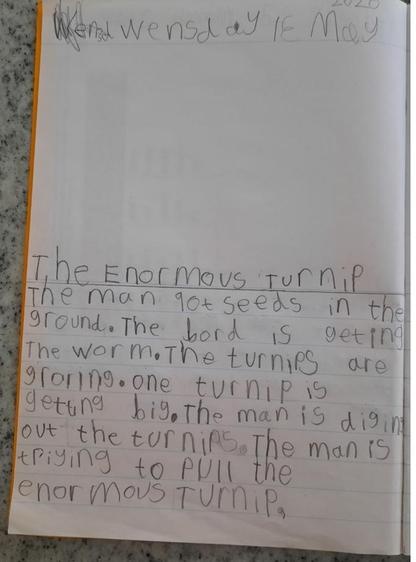 2020
Wensday 15 May
The Enormous Turnip
The man got seeds in the
ground. The bord is geting
The worm. The turnips are
groring. one turnip is
getting big. The man is digin
out the turnips. The man is
triying to pull the
enormous Turnip.